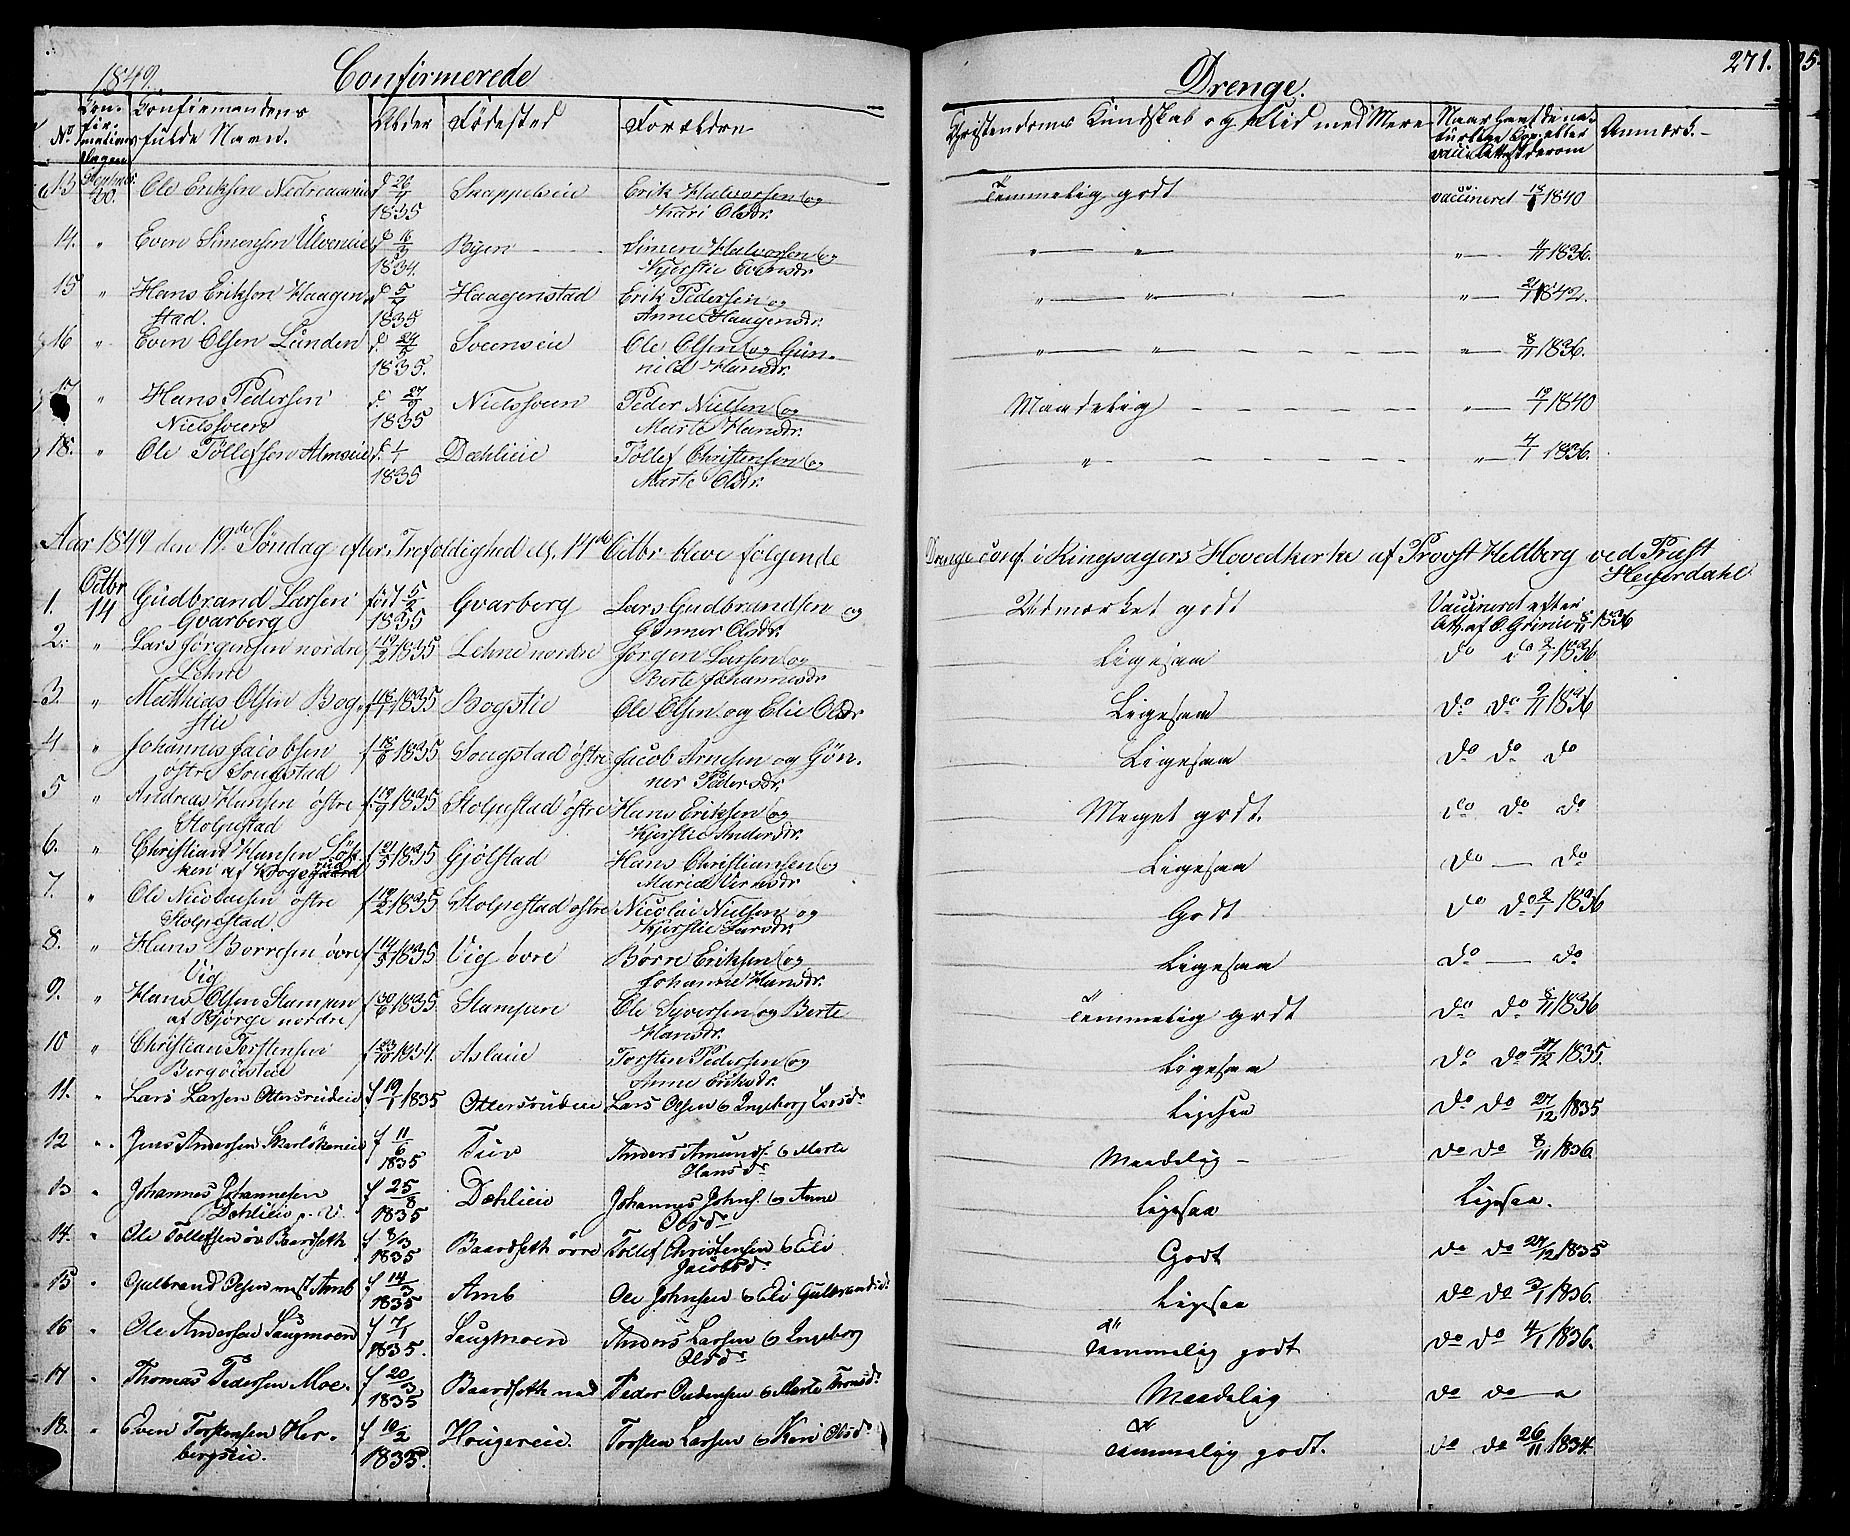 1849. Confirmerede Drenge. 271.
No. Con-fir-mations Dagen Confirmandens fulde Navn. Alder Fødested Forældre Christendoms Kundskab og Flid med Mere Anmærk.
13 20. Ole Eriksen f 20/4 1835 Erik Halvorsen og Kari Olsdr. Temmelig godt vaccineret 1840
14. " Even Simensen Ulveneie f 16/3 1834. Byen Simen Halvorsen og Kjerstie Evensdr. " " " 1836.
15 " Hans Eriksen Haagenstad. 1835 Haagenstad Erik Pedersen og Anne Haagensdr. " " " 1842.
16 " Even Olsen Lunden 1835. Sveenseie Ole Olsen og Gunnild Hansdr. " " " 8/11 1836.
17 " Hans Pedersen Nielssveen f. 27/9 1835 Nielssveen Peder Nielsen og Marte Hansdr. Maadelig " 1840
18. " Ole Tøllefsen Almseie 1835 Dæhlieie Tøllef Christensen og Marte Olsdr. " " 1836.
Aar 1849 den 19de Søndag efter Trefoldighed d. 14de Octbr. bleve følgende Drenge conf. i Ringsagers Hovedkirke af Provst Hellberg ved Præst Heyerdahl.
1. Octbr 14 Gudbrand Larsen Gvarberg født 5/2 1835 Gvarberg Lars Gudbrandsen og Gunner Olsdr. Udmærket godt Vaccineret efter Att. af O. 1836
2. " Lars Jørgensen nordre Lehne f 19/2 1835 Lehne nordre Jørgen Larsen og Berte Johannesdr Ligesaa do do 2/1 1836
3. " Matthias Olsen Bogstie f 1835 Bogstie Ole Olsen og Elie Olsdr Ligesaa do do 1836
4 " Johannes Jacobsen østre Sougstad f 1835 Sougstad østre Jacob Arnesen og Gønner Pedersdr. Ligesaa do do do
5 " Andreas Hansen østre Stolpestad f. 19/9 1835 Stolpestad østre Hans Eriksen og Kjerstie Andersdr. Meget godt. do do do
6. " Christian Hansen af f 1835 Gjølstad Hans Christiansen og Ligesaa do — do
7. " Ole Nicolaisen østre Stolpestad. f 1835 Stolpestad østre Nicolai Nielsen og Kjerstie Larsdr. Godt do do 2/1 1836
8. " Hans Børresen øvre Vig f 14/5 1835 Vig øvre Børre Eriksen og Johanne Hansdr. Ligesaa do — do
9. " Hans Olsen Stampen af Bjørge nordre f 30/6 1835 Stampen Ole Syversen og Berte Hansdr. Temmelig godt do do 8/11 1836
10 " Christian Torstensen f 23/10 1834. Aslaie Torsten Pedersen og Anne Eriksdr. Ligesaa do do 27/12 1835.
11. " Lars Larsen Ottersrudeie f 19/1 1835 Ottersrudeie Lars Olsen o Ingeborg Larsdr Ligesaa do do 27/12 1835
12 " Jens Andersen f 11/6 1835 Tuv Anders Amunds. o Marte Hansdr Maadelig – do do 8/11 1836
13 " Johannes Johannesen Dæhlieie f 25/8 1835 Dæhlieie Johannes Johns. og Anne Olsdr Ligesaa Ligesaa.
14. " Ole Tollefsen øv Baardseth f 8/3 1835 Baardseth øvre Tollef Christensen o Eli Jacobsdr Godt do do 27/12 1835
15 " Gulbrand Olsen Amb f 14/3 1835 Amb Ole Johnsen o Eli Gulbrandsdr Ligesaa do do 1836.
16 " Ole Andersen Saugmoen f 7/1 1835. Saugmoen Anders Larsen o Ingeborg Olsdr Temmelig godt do do 4/1 1836.
17 " Thomas Pedersen Moe. f 20/3 1835 Baardseth ned Peder Marte Maadelig do do — "
18. " Even Torstensen Herbergseie. f 10/2 1835. Hougereie. Torsten Larsen o Kari Olsdr Temmelig godt. do do 26/11 1834.